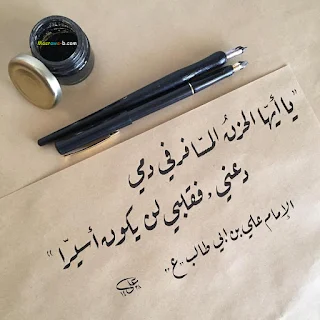 Masrawa-b.com
"يا أيها الحزن المسافر في دمي
دعني، فقلبي لن يكون أسيرًا"
الإمام علي بن أبي طالب "ع"